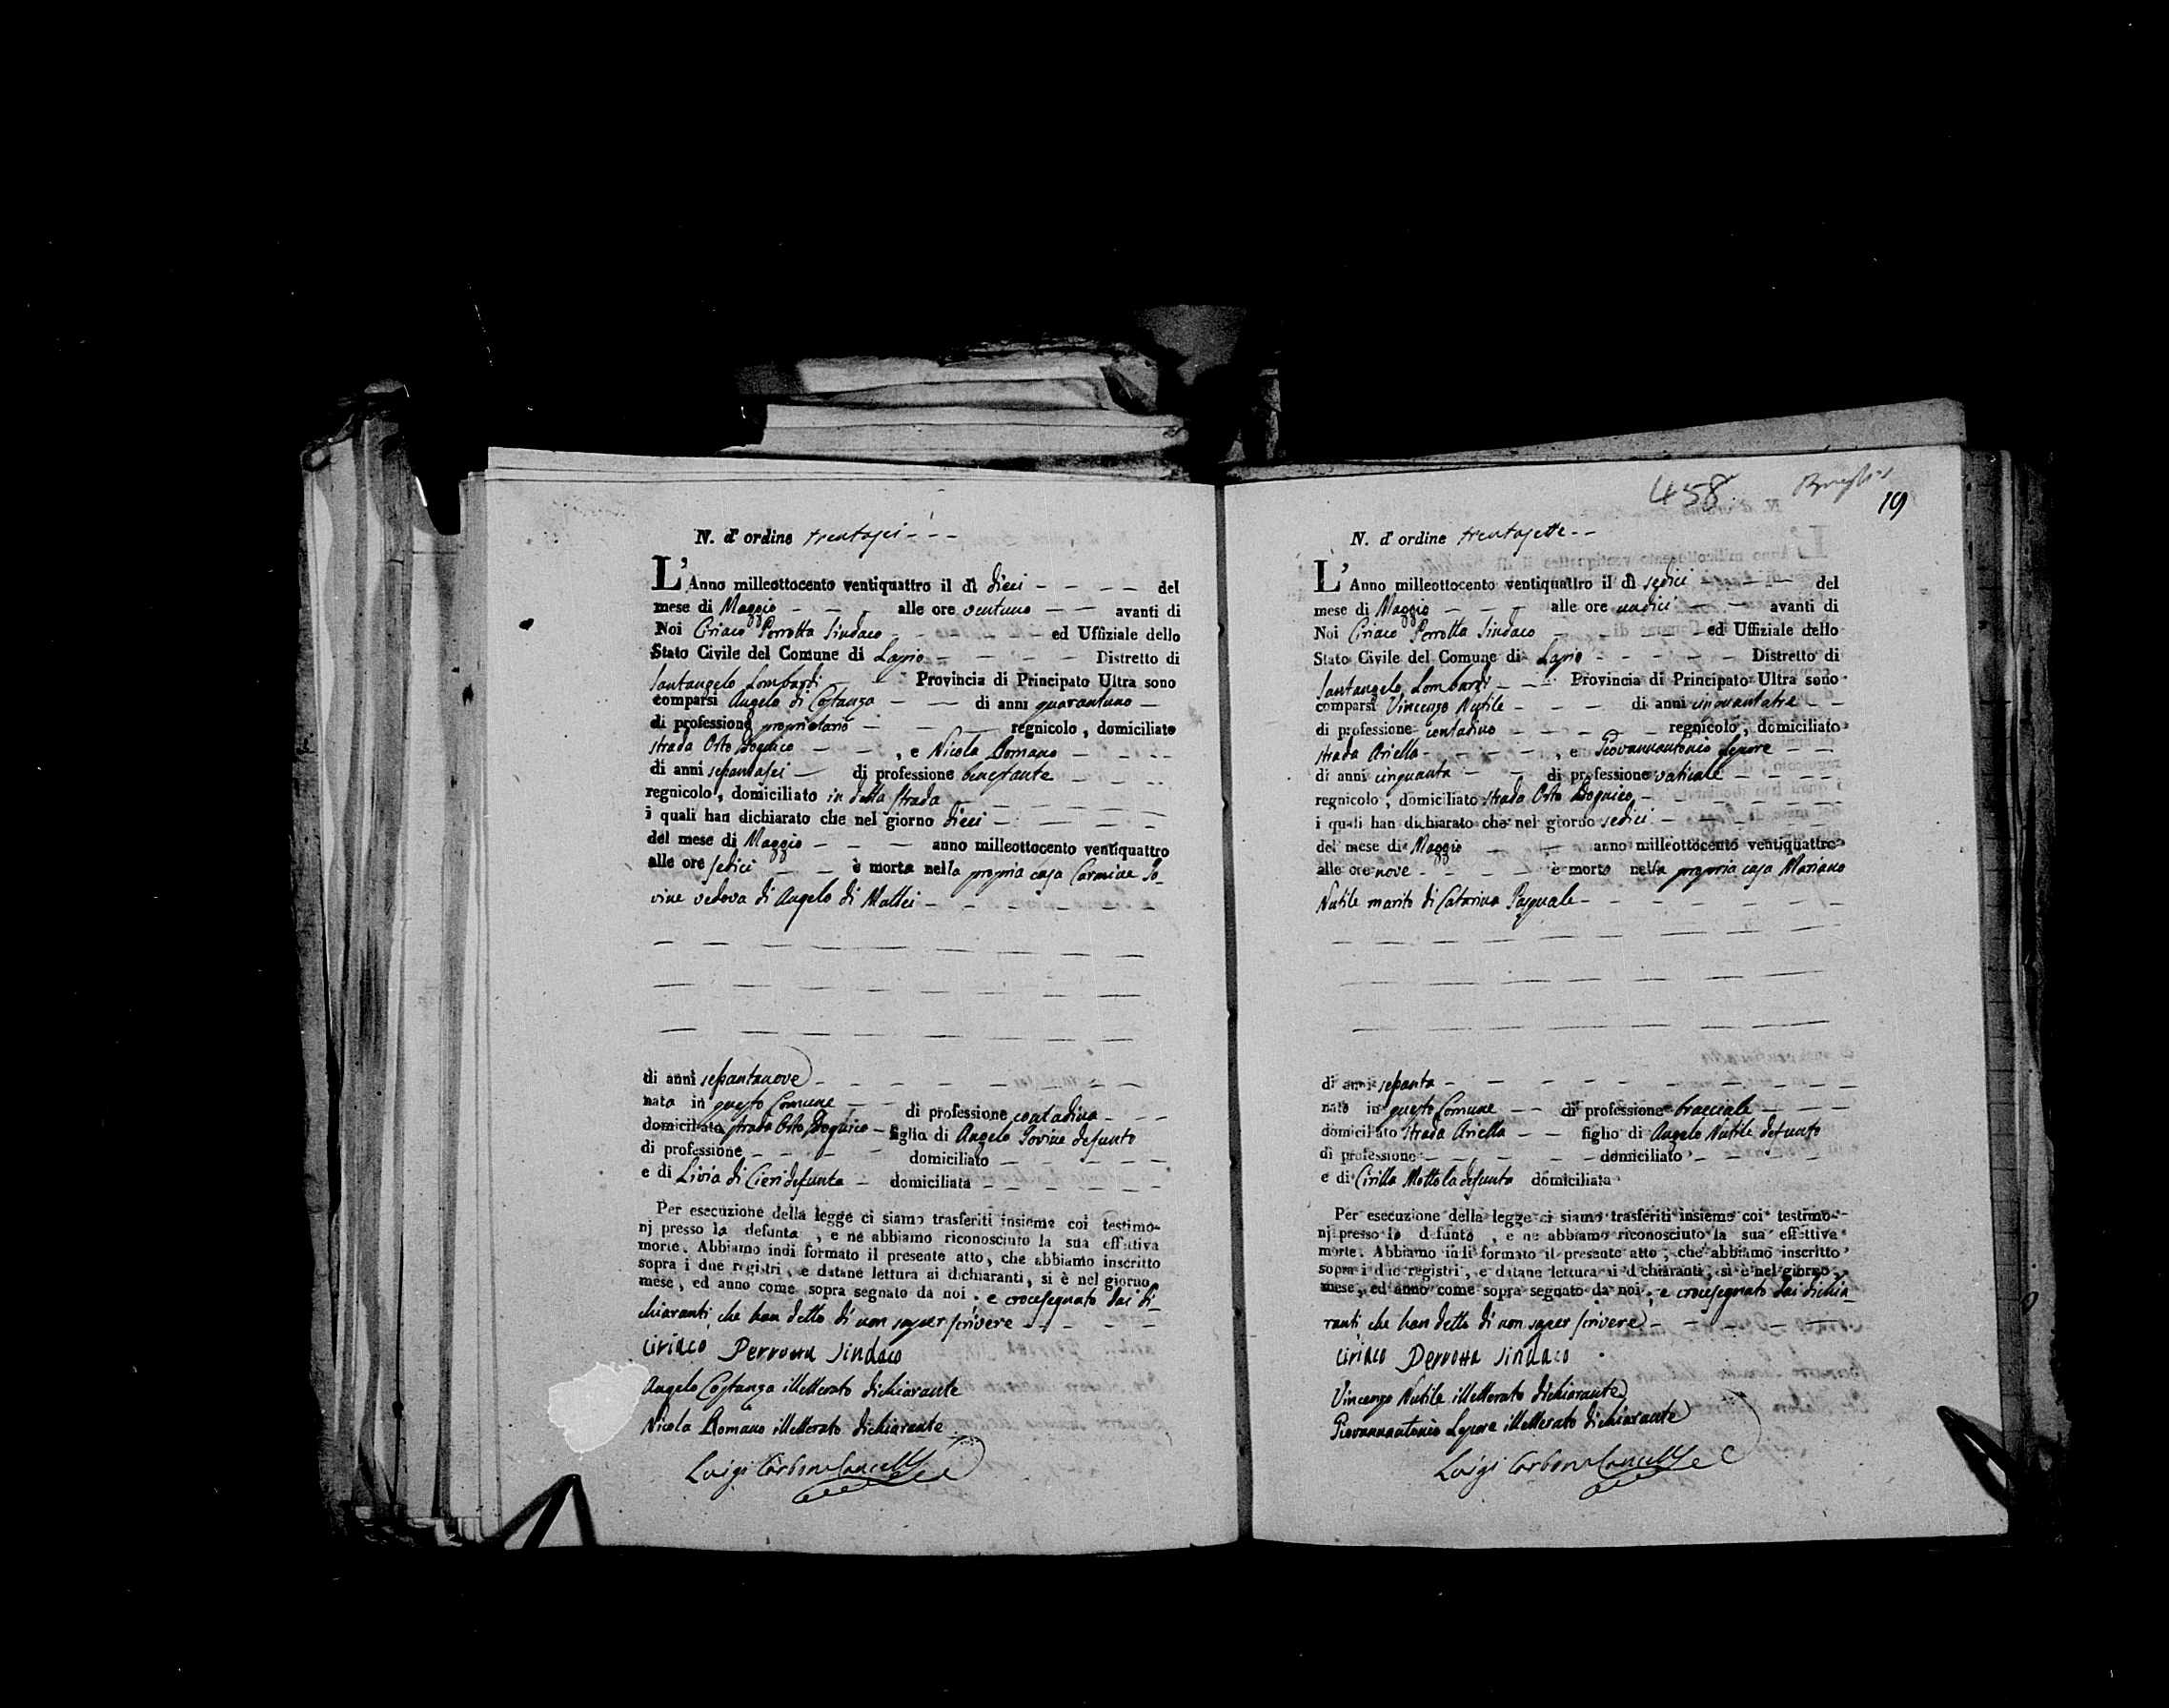 N. d'ordine trentasei - - -
L'Anno milleottocento ventiquattro il dì dieci - - - - del
mese di Maggio - - - alle ore ventuno - - avanti di
Noi Ciriaco Perrotta Sindaco - - - ed Uffiziale dello
Stato Civile del Comune di Lapio - - - - Distretto di
Santangelo Lombardi - - Provincia di Principato Ultra sono
comparsi Angelo di Costanzo - - di anni quarantuno -
di professione proprietario - - - regnicolo, domiciliato
strada Orto - - , e Nicola Romano - - - -
di anni settantasei - di professione benestante - - -
regnicolo, domiciliato in detta strada - - - - -
i quali han dichiarato che nel giorno dieci - - - - -
del mese di Maggio - - - anno milleottocento ventiquattro
alle ore sedici - - è morta nella propria casa Carmina Jo-
vine vedova di Angelo di Mattei - - - - - -
di anni settantanove - - - - - - - -
nata in questo Comune - - di professione contadina - - -
domiciliata strada Orto - figlia di Angelo Jovine defunto
di professione - - - - domiciliato - - - - -
e di Livia di Cieri defunta - domiciliata - - - - -
Per esecuzione della legge ci siamo trasferiti insieme coi testimo-
nj presso la defunta , e ne abbiamo riconosciuto la sua effettiva
morte. Abbiamo indi formato il presente atto, che abbiamo inscritto
sopra i due registri, e datane lettura ai dichiaranti, si è nel giorno,
mese, ed anno come sopra segnato da noi, e crocesegnato dai di-
chiaranti che han detto di non saper scrivere - - - - -
Ciriaco Perrotta Sindaco
Angelo Costanzo illetterato dichiarante
Nicola Romano illetterato dichiarante
Luigi Carbone Cancell
458
19
N. d'ordine trentasette - -
L'Anno milleottocento ventiquattro il dì sedici - - - del
mese di Maggio - - - alle ore undici - - avanti di
Noi Ciriaco Perrotta Sindaco - - - ed Uffiziale dello
Stato Civile del Comune di Lapio - - - - - Distretto di
Santangelo Lombardi - - Provincia di Principato Ultra sono
comparsi Vincenzo Nutile - - - di anni cinquantatre - -
di professione contadino - - - - - regnicolo, domiciliato
strada Ariella - - - - - , e Giovannantonio Lepore - -
di anni cinquanta - - di professione vaticale - - - -
regnicolo, domiciliato strada Orto - - - - - -
i quali han dichiarato che nel giorno sedici - - - - -
del mese di Maggio - - anno milleottocento ventiquattro
alle ore nove - - - - è morto nella propria casa Mariano
Nutile marito di Catarina Pasquale - - - - - - -
di anni settanta - - - - - - - - - -
nato in questo Comune - - di professione bracciale - - -
domiciliato strada Ariella - - figlio di Angelo Nutile defunto
di professione - - - - - domiciliato - - - -
e di Cirilla Mottola defunta domiciliata
Per esecuzione della legge ci siamo trasferiti insieme coi testimo-
nj presso lo defunto , e ne abbiamo riconosciuto la sua effettiva
morte. Abbiamo indi formato il presente atto, che abbiamo inscritto
sopra i due registri, e datane lettura ai dichiaranti, si è nel giorno,
mese, ed anno come sopra segnato da noi, e crocesegnato dai dichia-
ranti che han detto di non saper scrivere - - - - -
Ciriaco Perrotta Sindaco
Vincenzo Nutile illetterato dichiarante
Giovannantonio Lepore illetterato dichiarante
Luigi Carbone Cancell